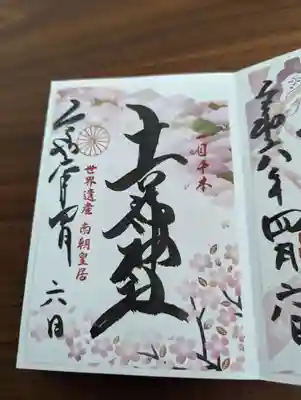 一目千本
吉水神社
世界遺産 南朝皇居
令和六年四月
六日
令和六年四月
六日